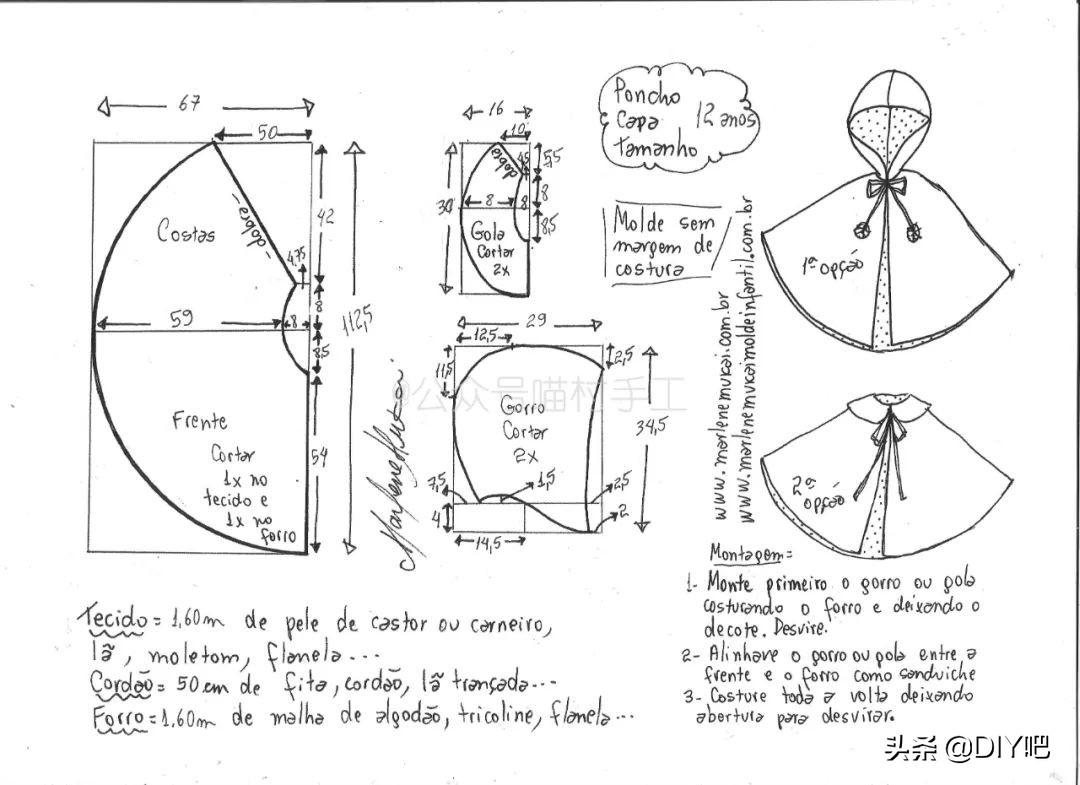 67
50
Costas
dobra
4,75
42
8
59
8
8,5
112,5
Frente
Cortar
1x no
tecido e
1x no
forro
54
16
10
dobra
4,5
5,5
8
30
8
8
8,5
Gola
Cortar
2x
Poncho
Capa
Tamanho
12 anos
Molde sem
margem de
costura
29
12,5
11,5
2,5
Gorro
Cortar
2x
34,5
7,5
1,5
2,5
4
2
14,5
Marlene Mukai
@公众号喵村手工
www.marlenemukai.com.br
www.marlenemukaimoldeinfantil.com.br
1ª opção
2ª opção
Montagem=
1- Monte primeiro o gorro ou gola
costurando o forro e deixando o
decote. Desvire.
2- Alinhave o gorro ou gola entre a
frente e o forro como sanduiche
3- Costure toda a volta deixando
abertura para desvirar.
Tecido = 1,60m de pele de castor ou carneiro,
lã, moletom, flanela...
Cordão = 50 cm de fita, cordão, lã trançada...
Forro = 1.60m de malha de algodão, tricoline, flanela...
头条 @DIY吧